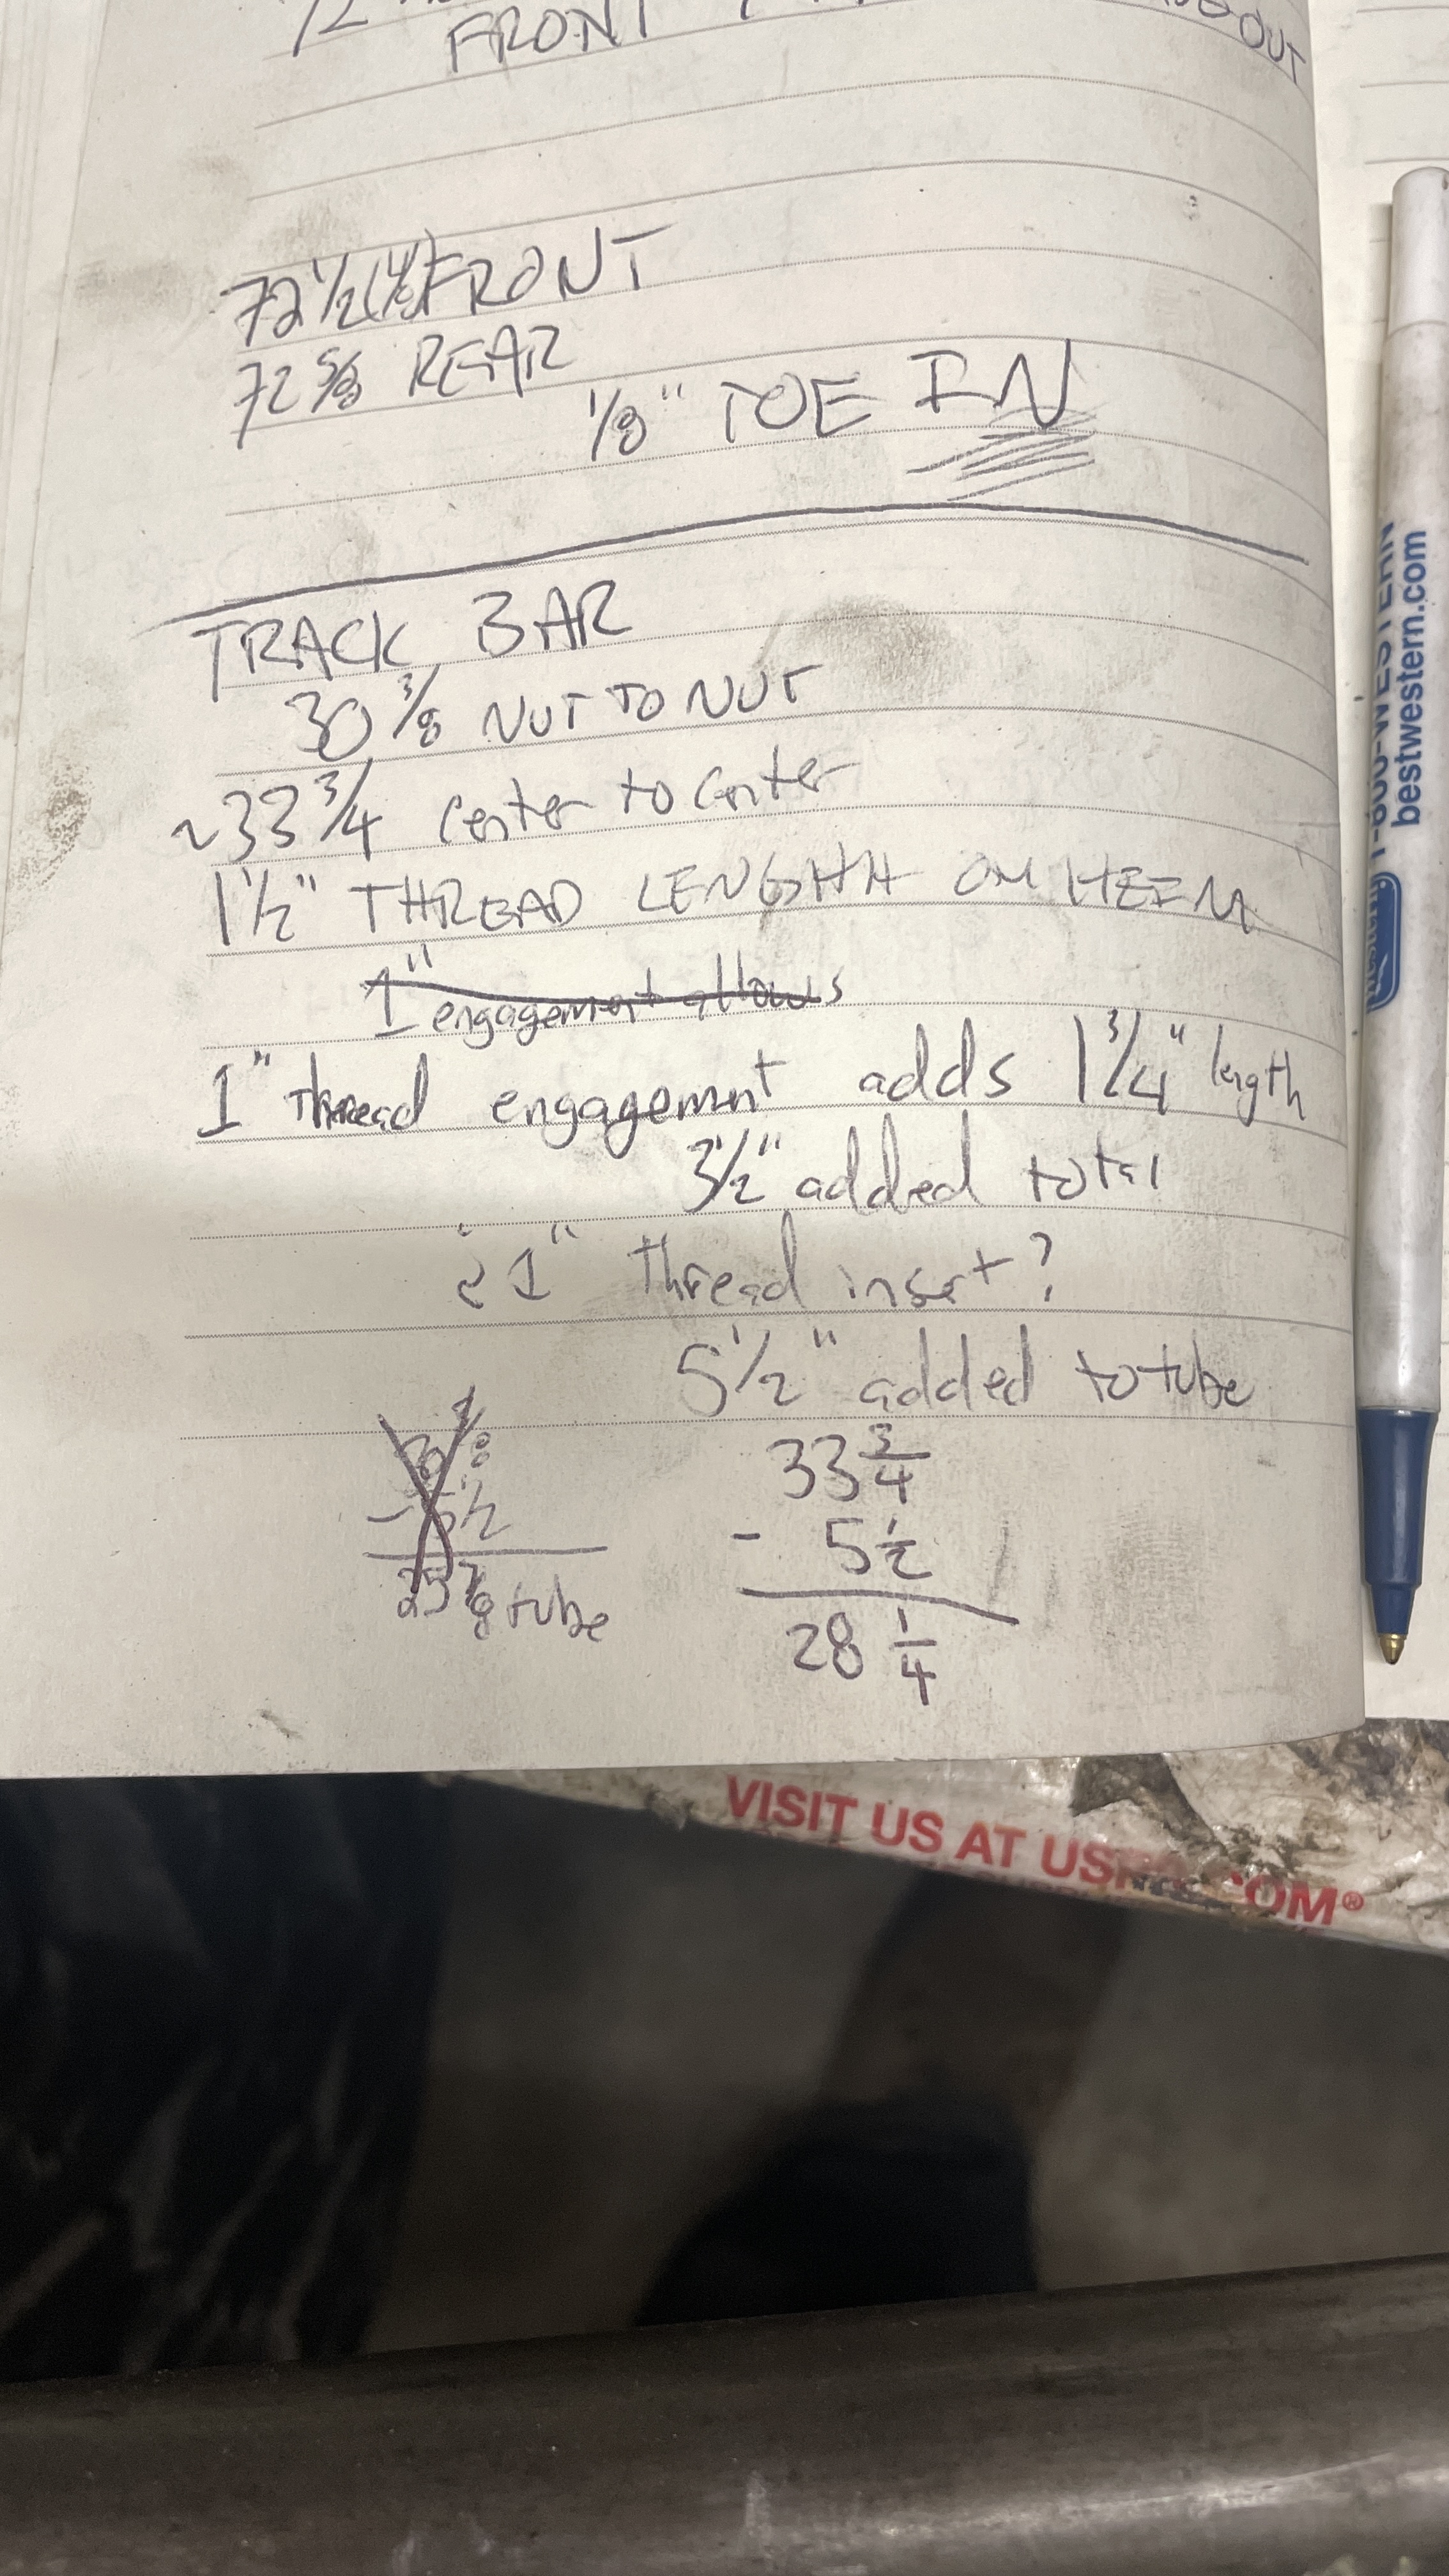 FRONT
OUT
72 1/2 (4/8) FRONT
72 5/8 REAR
1/8" TOE IN
TRACK BAR
30 3/8 NUT TO NUT
~33 3/4 center to center
1 1/2" THREAD LENGHH ON HEIM
1" engagement allows
1" thread engagement adds 1 3/4" length
3 1/2" added total
¿ 1" thread insert?
5 1/2" added to tube
- 5 1/2
25 7/8 tube
33 3/4
- 5 1/2
28 1/4
1-800-WESTERN
bestwestern.com
VISIT US AT